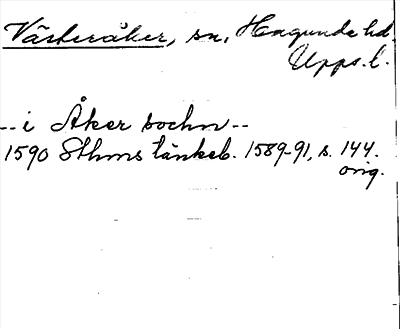 Västeråker, sn, Hagunda hd.
Upps. l.
-- i Åker sochn --
1590 Sthms tänkeb. 1589-91, s. 144.
orig.